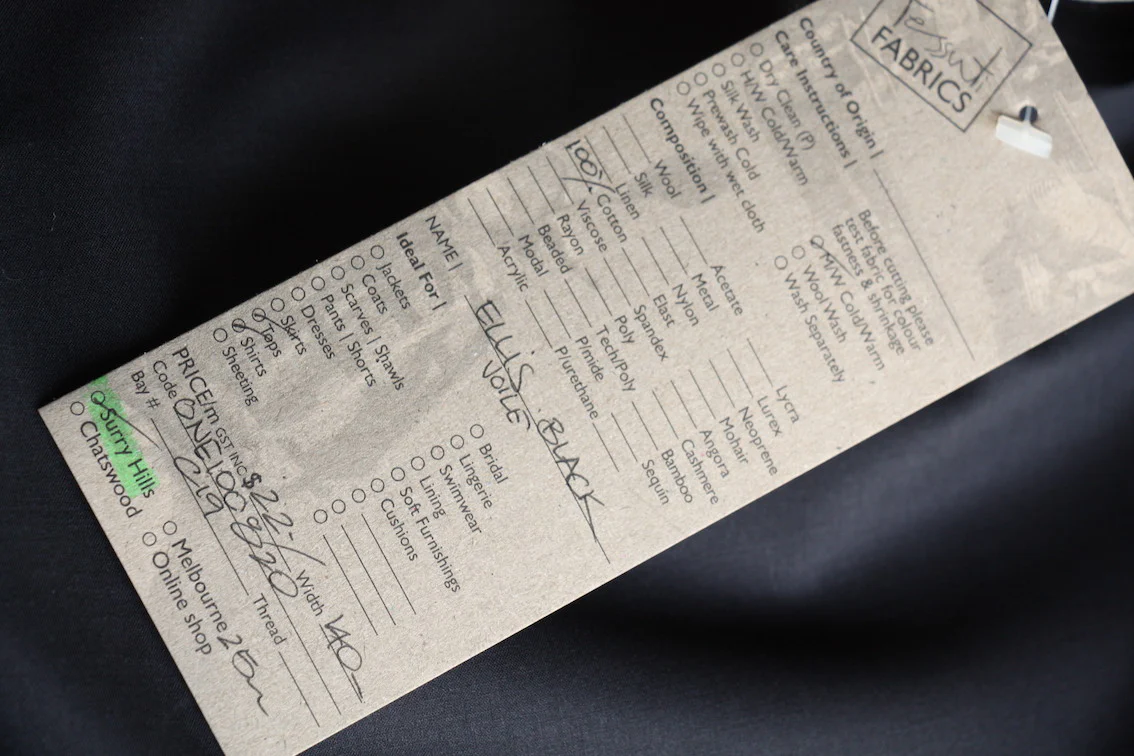 Tessuti
FABRICS
Country of Origin |
Care Instructions |
Dry Clean (P)
H/W Cold/Warm
Silk Wash
Prewash Cold
Wipe with wet cloth
Before cutting please
test fabric for colour
fastness & shrinkage
M/W Cold/Warm
Wool Wash
Wash Separately
Composition |
Wool
Silk
Linen
100% Cotton
Viscose
Rayon
Beaded
Modal
Acrylic
Acetate
Metal
Nylon
Elast
Spandex
Poly
Tech/Poly
P/mide
P/urethane
Lycra
Lurex
Neoprene
Mohair
Angora
Cashmere
Bamboo
Sequin
NAME | ELLIS BLACK
VOILE
Ideal For |
Jackets
Coats
Scarves | Shawls
Pants | Shorts
Dresses
Skirts
Tops
Shirts
Sheeting
Bridal
Lingerie
Swimwear
Lining
Soft Furnishings
Cushions
PRICE/m GST INC $22-/ Width 140
Code ONE100820 Thread
Bay # C19
Surry Hills
Chatswood
Melbourne 25m
Online shop